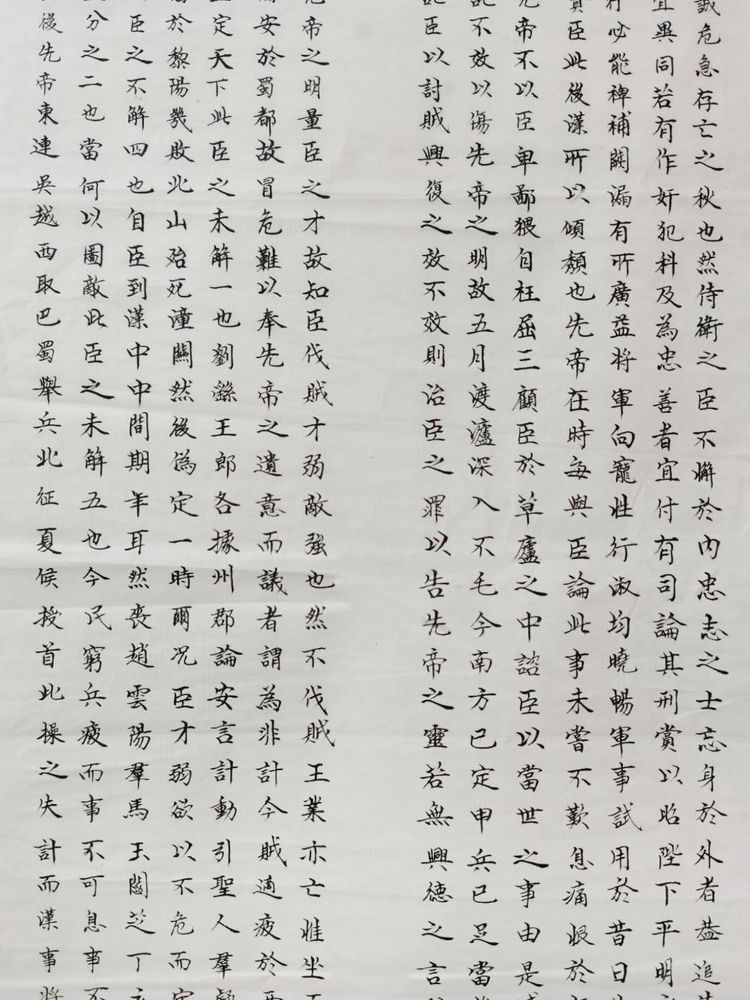 誠危急存亡之秋也然侍衛之臣不懈於內忠志之士忘身於外者蓋追
宜異同若有作奸犯科及為忠善者宜付有司論其刑賞以昭陛下平明
行必能裨補闕漏有所廣益將軍向寵性行淑均曉暢軍事試用於昔日
賢臣此後漢所以傾頹也先帝在時每與臣論此事未嘗不歎息痛恨於
先帝不以臣卑鄙猥自枉屈三顧臣於草廬之中諮臣以當世之事由是
託不效以傷先帝之明故五月渡瀘深入不毛今南方已定甲兵已足當
託臣以討賊興復之效不效則治臣之罪以告先帝之靈若無興德之言
先帝之明量臣之才故知臣伐賊才弱敵強也然不伐賊王業亦亡惟坐
安於蜀都故冒危難以奉先帝之遺意而議者謂為非計今賊適疲於西
定天下此臣之未解一也劉繇王郎各據州郡論安言計動引聖人羣疑
於黎陽幾敗北山殆死潼關然後偽定一時爾況臣才弱欲以不危而定
臣之不解四也自臣到漢中中間期年耳然喪趙雲陽羣馬玉閻芝丁
分之二也當何以圖敵此臣之未解五也今民窮兵疲而事不可息事不
後先帝東連吳越西取巴蜀舉兵北征夏侯授首此操之失計而漢事將